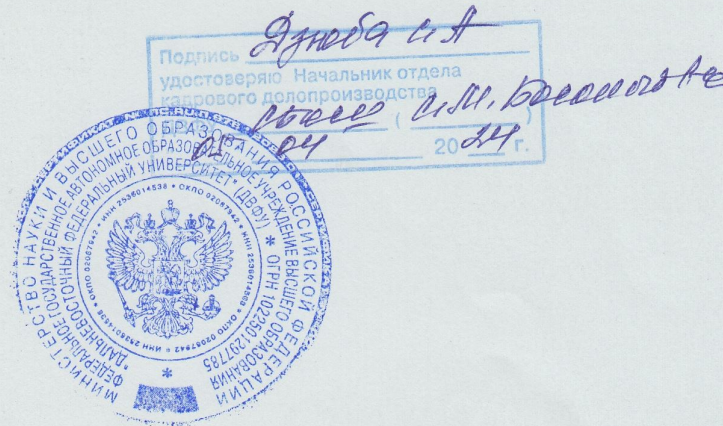 Подпись Дзюба И А
удостоверяю Начальник отдела
кадрового делопроизводства
( И.М. )
04 2024 г.
МИНИСТЕРСТВО НАУКИ И ВЫСШЕГО ОБРАЗОВАНИЯ РОССИЙСКОЙ ФЕДЕРАЦИИ
ФЕДЕРАЛЬНОЕ ГОСУДАРСТВЕННОЕ АВТОНОМНОЕ ОБРАЗОВАТЕЛЬНОЕ УЧРЕЖДЕНИЕ ВЫСШЕГО ОБРАЗОВАНИЯ
"ДАЛЬНЕВОСТОЧНЫЙ ФЕДЕРАЛЬНЫЙ УНИВЕРСИТЕТ" (ДВФУ) * ОГРН 1022501297785
* ИНН 2536014538 * ОКПО 02067942 * ИНН 2536014538 * ОКПО 02067942 * ИНН 2536014538 * ОКПО 02067942